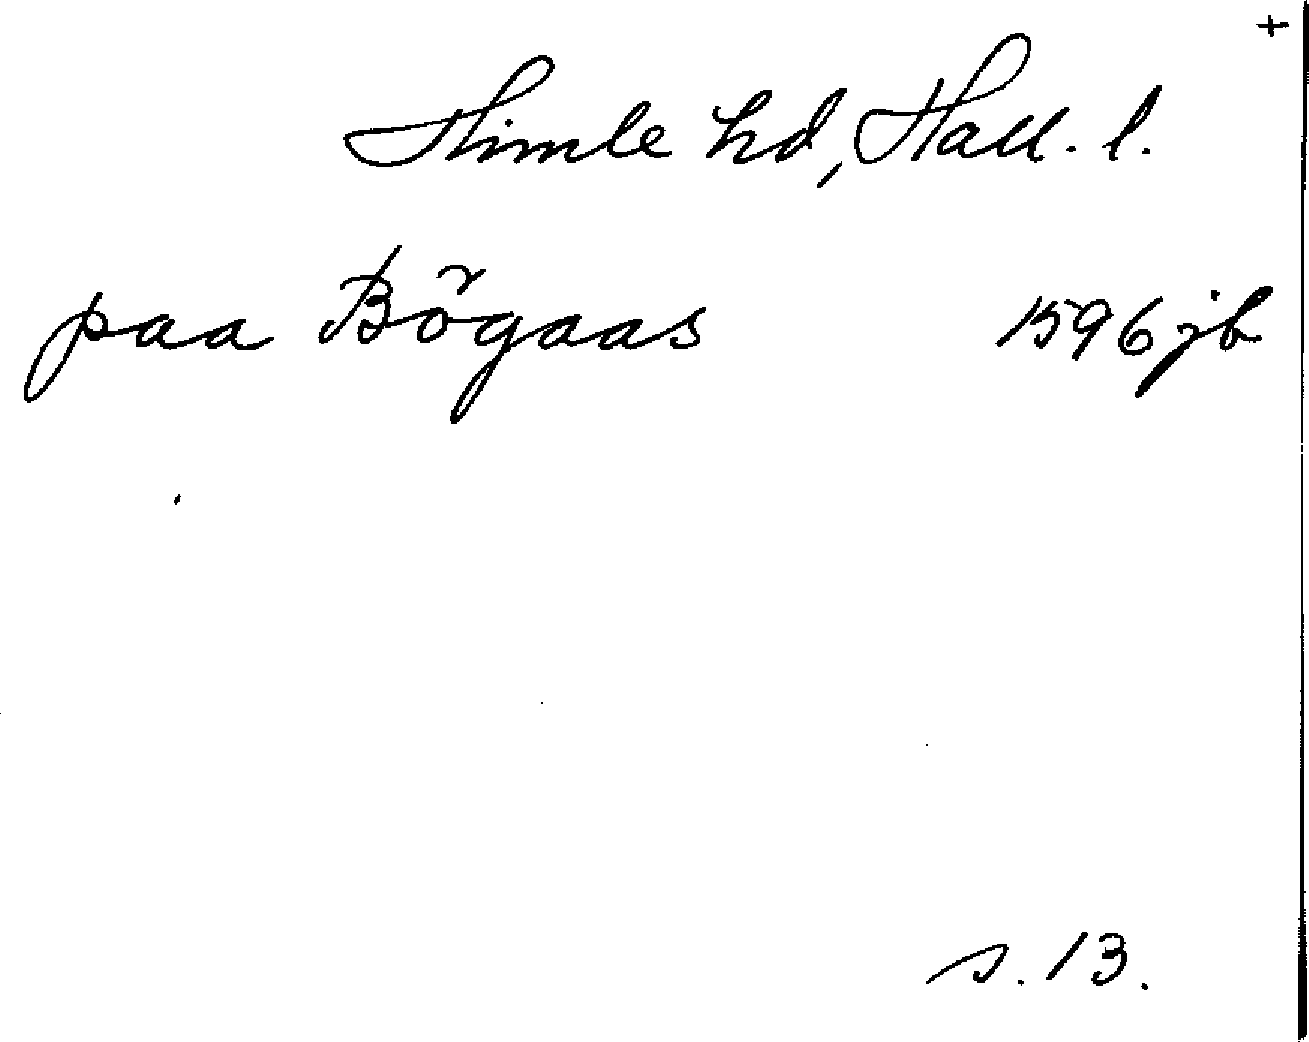 +
Himle hd, Hall. l.
paa Bögaas 1596 jb
s. 13.